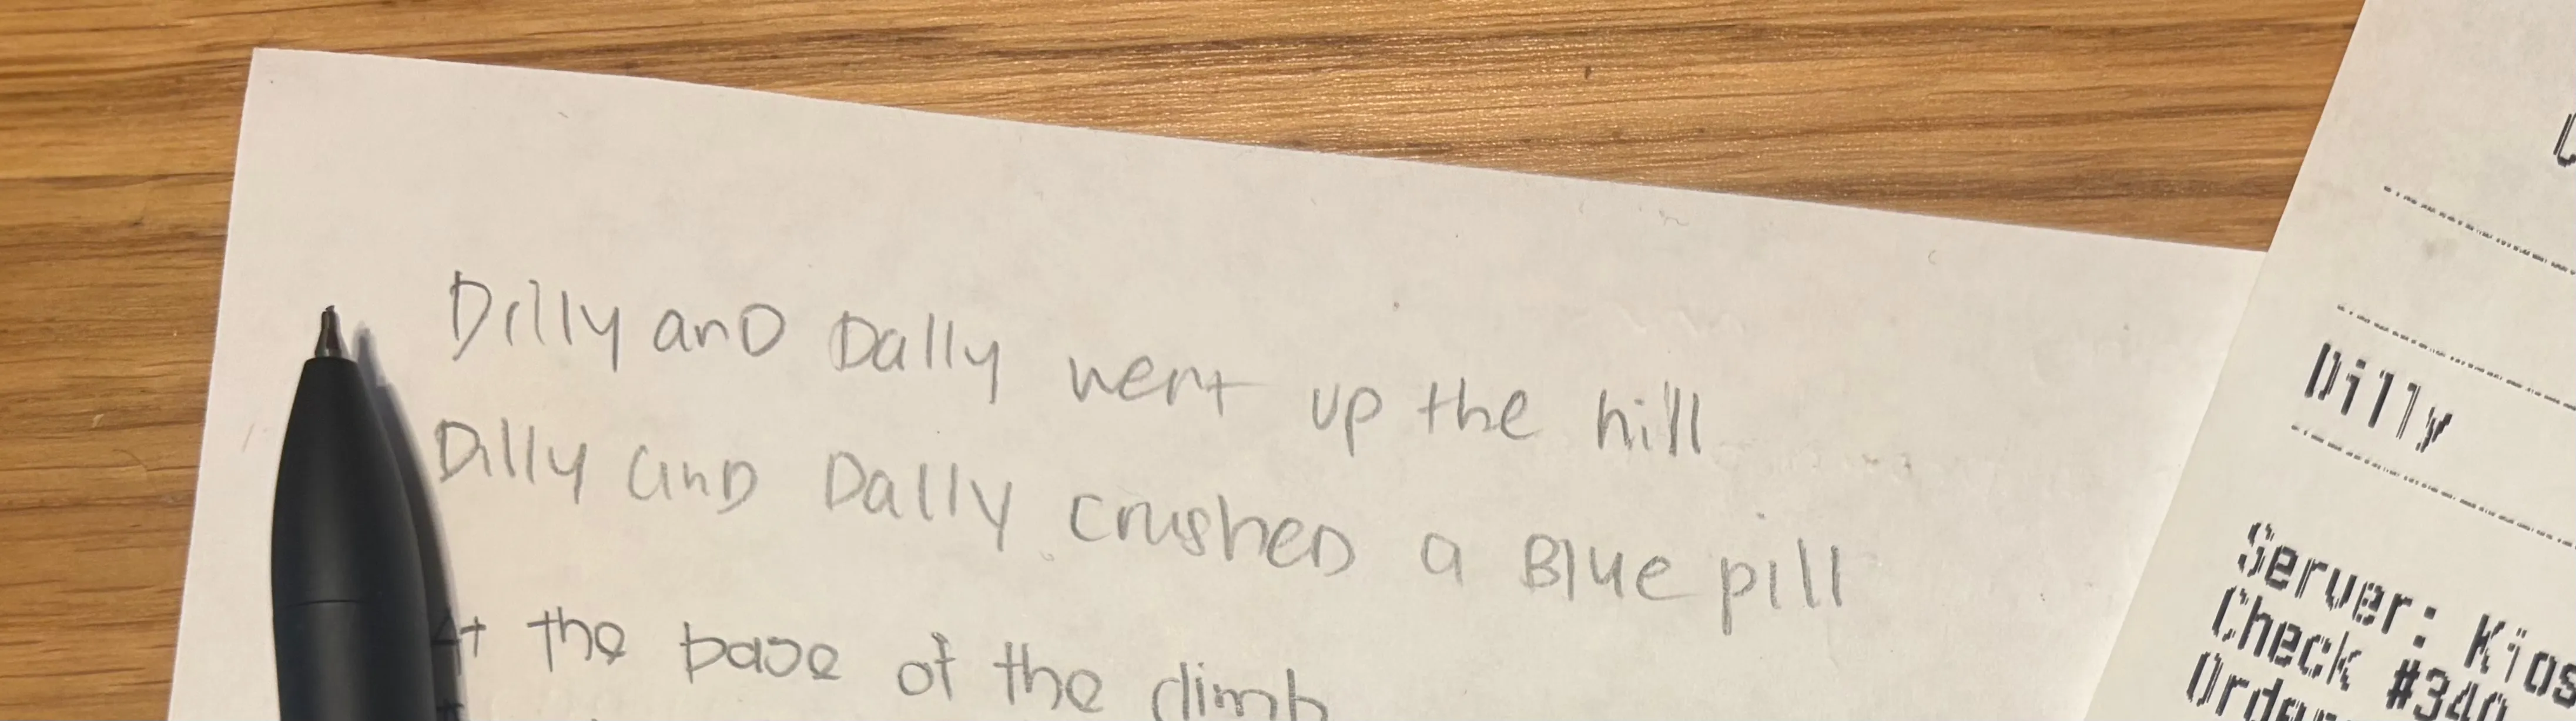 Dilly anD Dally went up the hill
Dilly anD Dally crusheD a Blue pill
At the base of the climb
Dilly
Server:
Check #340